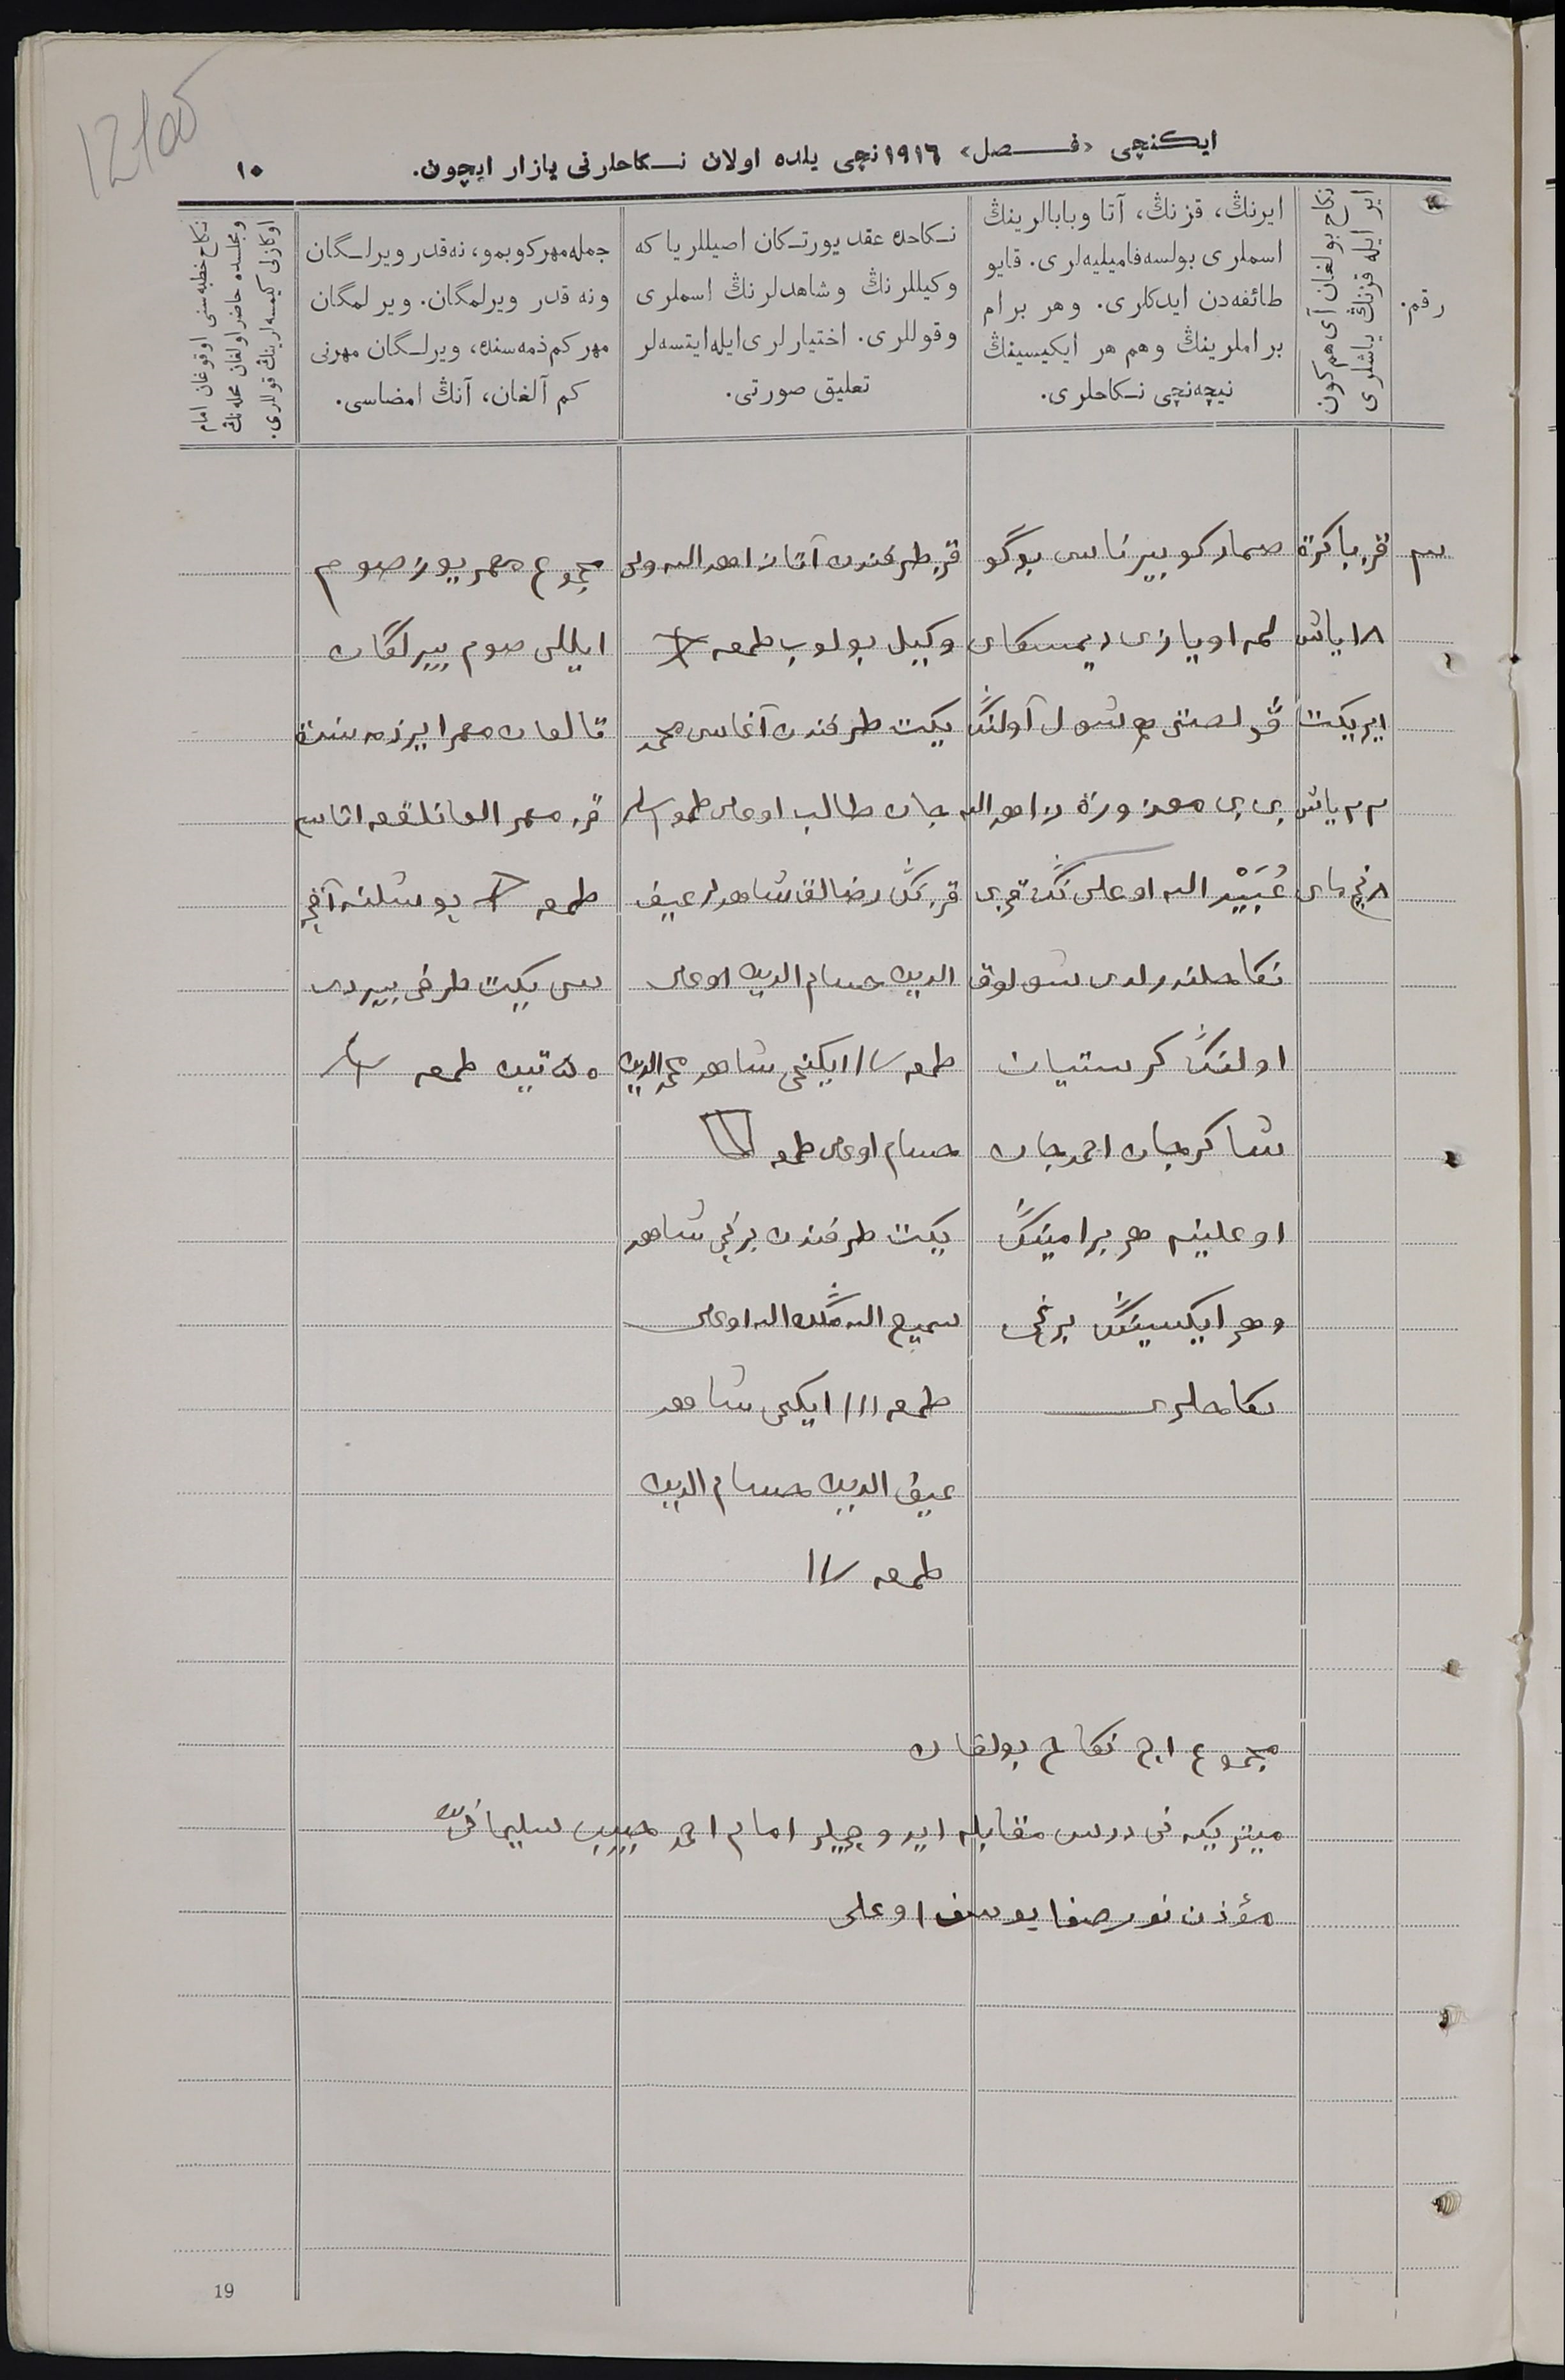 12700
ایكنچی «فـــصل» ١٩١٦نچی یلده اولان نـكاحلرنی یازار ایچون.
١٠
رقم.
ایر ایله قزنڭ یاشلری
نكاح بولغان آی هم كون
ایرنڭ، قزنڭ، آتا وبابالرینڭ
اسملری بولسه فامیلیه‌لری. قایو
طائفه‌دن ایدكلری. وهر برام
براملرینڭ وهم هر ایكیسینڭ
نیچه‌نچی نـكاحلری.
نـكاحده عقد یورتـكان اصیللر یا كه
وكیللرنڭ وشاهدلرنڭ اسملری
وقوللری. اختیارلری ایله ایتسه‌لر
تعلیق صورتی.
جمله مهر كوبمو، نه‌قدر ویرلـگان
ونه قدر ویرلمگان. ویرلمگان
مهر كم ذمه‌سنده، ویرلـگان مهرنی
كم آلغان، آنڭ امضاسی.
نكاح خطبه‌سنی اوقوغان امام
ومجلسده حاضر اولغان محله‌نڭ
اوكازلی كیمسه‌لرینڭ قوللری.
٣
قز باكرة
١٨ یاش
ایر یكت
٢٣ یاش
٨نچی مای
صمار كوبیرناسی بوگو
لمه اویازی دیمسكای
ۋولصتی هم شول آولنڭ
بی بی معزوزة زاهدالله
عُبَيْدالله اوغلی نڭ قزی
نكاحلندرلدی شولوق
اولنڭ كرستیان
شاكرجان احمدجان
اوغلینه هر برامینڭ
وهر ایكسینڭ برنچی
نكاحلری
قز طرفندن آتاسی زاهدالله ولی
وكیل بولوب طمغه
یكت طرفندن آغاسی محمد
جان طالب اوغلی طمغه
قز نڭ رضالقن شاهدلر عیف
الدین حسام الدین اوغلی
طمغه ایكنچی شاهد محمدالدین
حسام اوغلی طمغه
یكت طرفندن برنچی شاهد
سمیع الله اوغلی
طمغه ااا ایكنچی شاهد
عیف الدین حسام الدین
طمغه
مجموع مهر یوز صوم
ایللی صوم بیرلگان
قالغان مهر ایر ذمه سنده
قز مهر العانلقغه اتاسی
طمغه بو شلنه آقچه
سی یكت طرفی بیردی
٥٠ تین طمغه
مجموع اوچ نكاح بولغان
میتریكه نی درس مقابله ایدوچیلر امام احمد حبیب سلیمانی
مؤذن نورصفا یوسف اوغلی
19